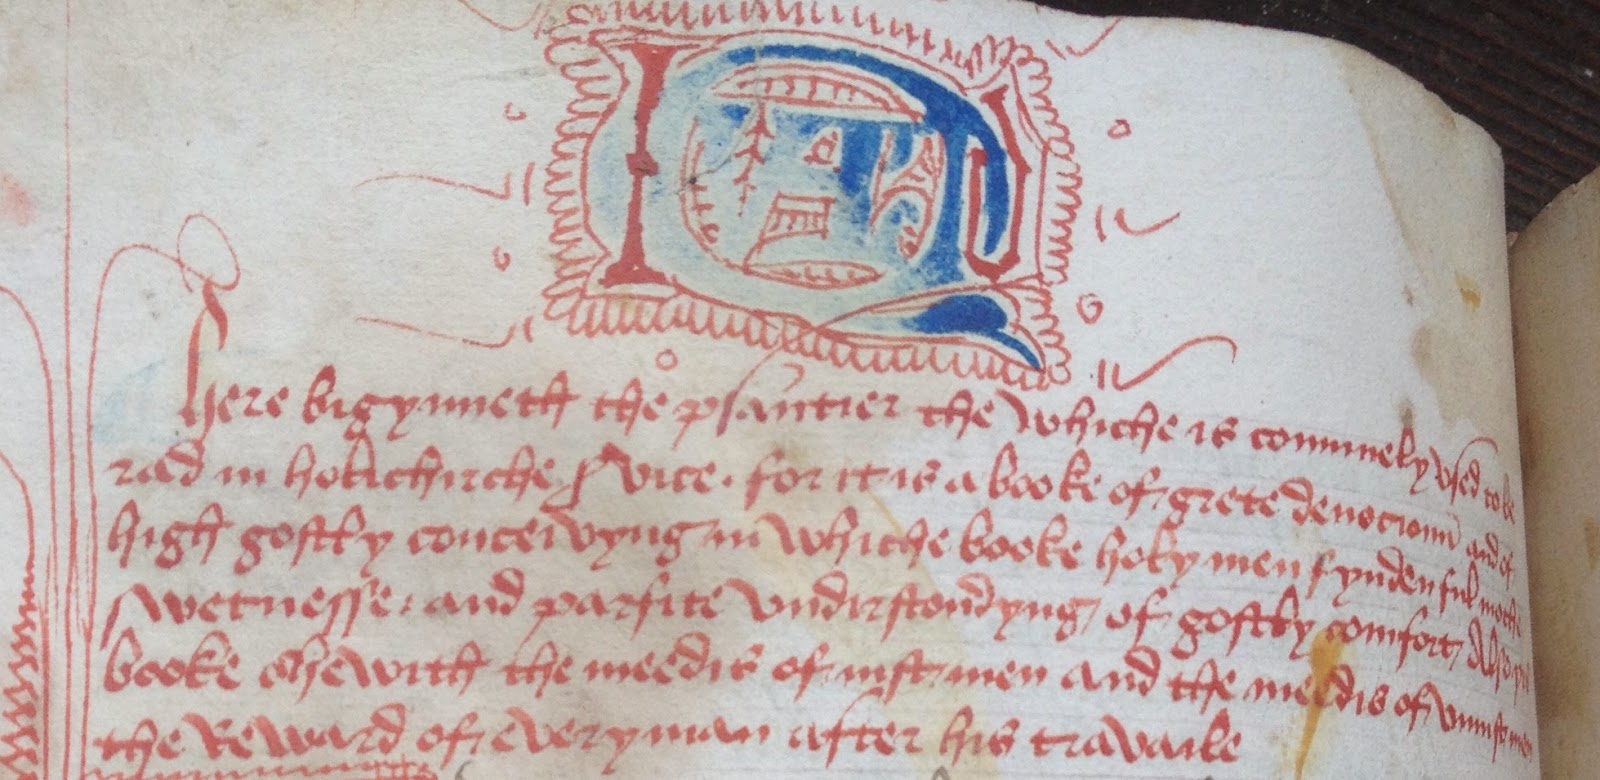 here bigynneth the psautier the whiche is comunely vsed to be
rad in holichirche seruice. for it is a booke of grete deuocioun and of
high gostly conceivyng in whiche booke holy men fynden ful moche
swetnesse. and parfite vndirstondyng of gostly comfort Also this
booke shewith the meedis of iust men and the meedis of vniust men
the Reward of every man after his travaile